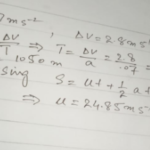 7 m s⁻² , ΔV = 28 m s
ΔV/T ⇒ T = ΔV/a = 28/.07 =
1050 m
sing S = ut + 1/2 a t
⇒ u = 24.85 m s⁻